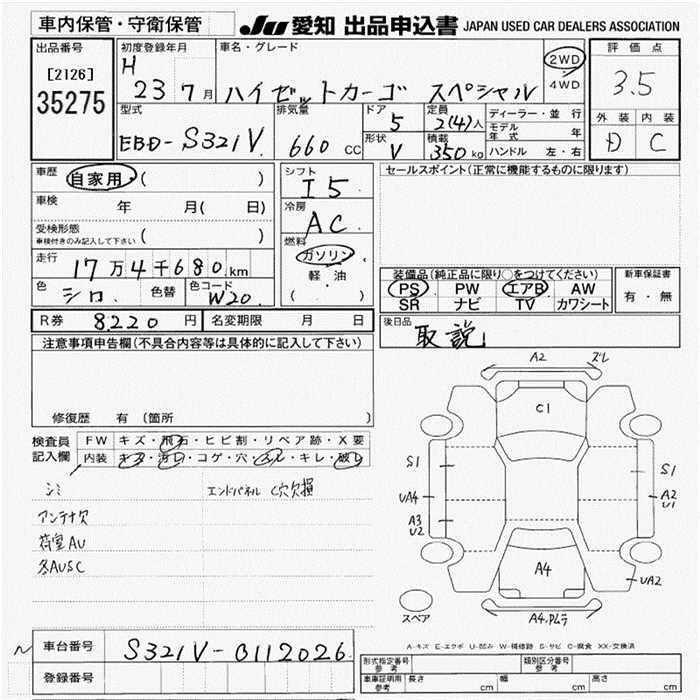 車内保管・守衛保管
JU 愛知 出品申込書 JAPAN USED CAR DEALERS ASSOCIATION
出品番号
[2126]
35275
初度登録年月
H 23 7月
車名・グレード
ハイゼットカーゴ スペシャル
2WD
4WD
評価点
3.5
外装 内装
D C
型式
EBD-S321V
排気量
660 CC
ドア
5
形状
V
定員
2(4)人
積載
350 kg
ディーラー・並行
モデル年式 年
ハンドル 左・右
車歴
自家用 ( )
車検
年 月( 日)
受検形態
車検付きのみ記入して下さい ( )
走行
17万4千680 km
色
シロ
色替
色コード
W20
シフト
I5
冷房
AC
燃料
ガソリン
軽油
( )
セールスポイント(正常に機能するものに限ります)
装備品(純正品に限り○をつけてください)
PS PW エアB AW
SR ナビ TV カワシート
新車保証書
有・無
R券 8,220 円 名変期限 月 日
後日品
取説
注意事項申告欄(不具合内容等は具体的に記入して下さい)
修復歴 有 (箇所 )
検査員
記入欄
FW キズ・飛石・ヒビ割・リペア跡・X要
内装 キズ・汚れ・コゲ・穴・スレ・キレ・破れ
シミ
エンドパネル C穴欠損
アンテナ欠
荷室AU
各AUSC
A2 ズレ
C1
S1
UA4
A3
U2
S1
A2
U1
A4
UA2
スペア
A4.Pムラ
A-キズ E-エクボ U-凹み W-補修跡 S-サビ C-腐食 XX-交換済
車台番号 S321V-0112026
登録番号
形式指定番号
参考
類別区分番号
参考
車庫証明用
参考
長さ cm 幅 cm 高さ cm